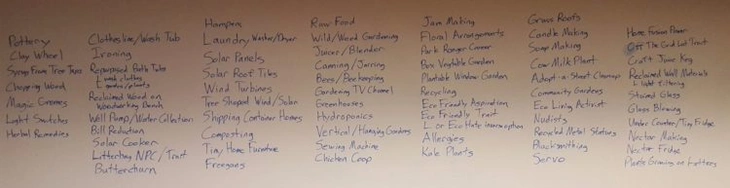 Pottery
Clay Wheel
Syrup From Tree Taps
Chopping Wood
Magic Gnomes
Light Switches
Herbal Remedies
Clothesline/Wash Tub
Ironing
Repurposed Bath Tubs
wash clothing
garden/plants
Reclaimed Wood or
Woodworking Bench
Well Pump/Water Collection
Bill Reduction
Solar Cooker
Litterbug NPC/Trait
Butterchurn
Hampers
Laundry Washer/Dryer
Solar Panels
Solar Roof Tiles
Wind Turbines
Tree Shaped Wind/Solar
Shipping Container Homes
Composting
Tiny Home Furniture
Freegans
Raw Food
Wild/Weed Gardening
Juicer/Blender
Canning/Jarring
Bees/Beekeeping
Gardening TV Channel
Greenhouses
Hydroponics
Vertical/Hanging Gardens
Sewing Machine
Chicken Coop
Jam Making
Floral Arrangements
Park Ranger Career
Box Vegetable Garden
Plantable Window Garden
Recycling
Eco Friendly Aspiration
Eco Friendly Trait
or Eco Hate
Allergies
Kale Plants
Grass Roofs
Candle Making
Soap Making
Cow/Milk Plant
Adopt-a Street Cleanups
Community Gardens
Eco Living Activist
Nudists
Recycled Metal Statues
Blacksmithing
Servo
Home Fusion Power
Off The Grid Lot Trait
Craft June Key
Reclaimed Wall Materials
Light Filtering
Stained Glass
Glass Blowing
Under Counter/Tiny Fridge
Nectar Making
Nectar Fridge
Plants Growing on Gutters